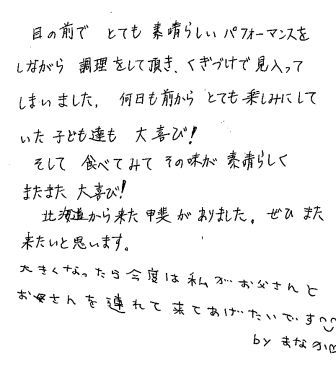 目の前で とても 素晴らしい パフォーマンスを
しながら 調理をして頂き、くぎづけで見入って
しまいました。 何日も前から とても楽しみにして
いた 子ども達も 大喜び！
そして 食べてみて その味が 素晴らしく
またまた 大喜び！
北海道から来た 甲斐 がありました。ぜひ また
来たいと思います。
大きくなったら今度は私がお父さんと
お母さんを連れて来てあげたいです
by まなか